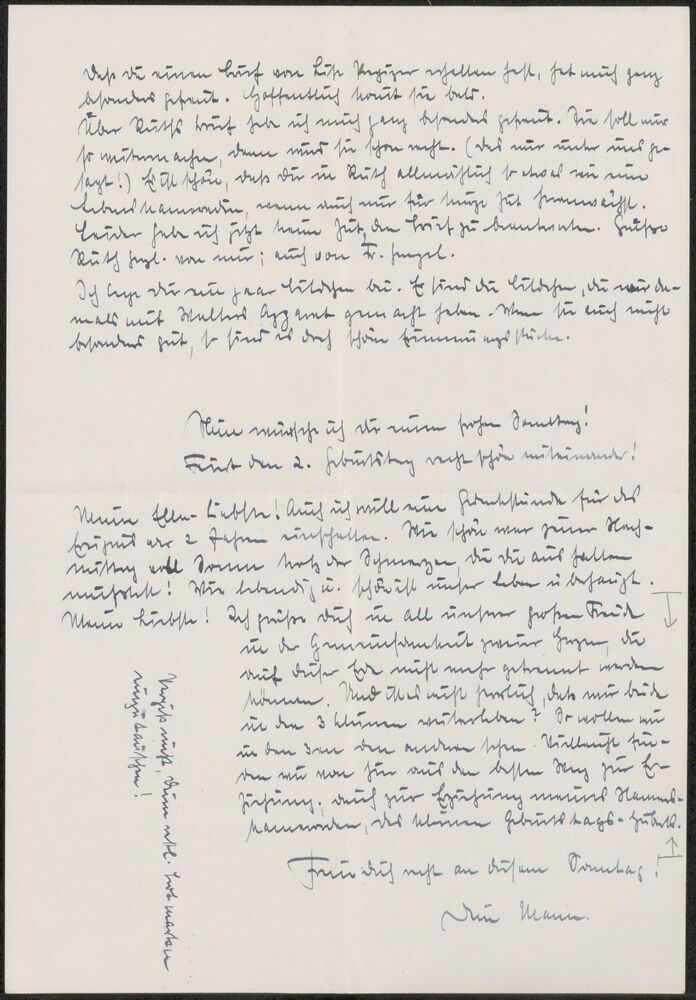 Daß du einen Brief von Lise Wagizer erhalten hast, hat mich ganz
besonders gefreut. Hoffentlich kommt sie bald.
Über Ruths Brief habe ich mich ganz besonders gefreut. Sie soll nur
so weitermachen, dann wird sie schon recht. (Das nur unter uns ge-
sagt!) Es ist schön, daß Dir in Ruth allmählich so etwas wie eine
Lebenskameradin, wenn auch nur für kurze Zeit heranwächst.
Leider habe ich jetzt keine Zeit, den Brief zu beantworten. Grüße
Ruth herzl. von mir; auch von Fr.
Ich lege Dir ein paar Bildchen bei. Es sind die Bildchen, die wir da-
mals mit Walters Apparat gemacht haben. Wenn sie auch nicht
besonders gut, so sind es doch schöne Erinnerungsstücke.
Nun wünsche ich dir einen frohen Sonntag!
Feiert den 2. Geburtstag recht schön miteinander!
Meine Ella-Liebste! Auch ich will eine Gedenkstunde für das
Ereignis vor 2 Jahren einschalten. Wie schön war jener Nach-
mittag voll Sonne trotz der Schmerzen, die Du aushalten
mußtest! Wie lebendig u. schön ist unser Leben überhaupt.
Meine Liebste! Ich grüße Dich in all unserer großen Freude
in der Gemeinsamkeit zweier Herzen, die
auf dieser Erde nicht mehr getrennt werden
können. Und ist es nicht herrlich, daß wir beide
in den 3 Kleinen weiterleben? So wollen wir
in den 3en den anderen sehen. Vielleicht fin-
den wir von hier aus den besten Weg zur Er-
ziehung, auch zur Erziehung meines Namens-
kameraden, des kleinen Geburtstags-Huberts.
Freue dich recht an diesem Sonntag!
Dein Mann.
Vergiß nicht, Deine Brotmarken
umzutauschen!